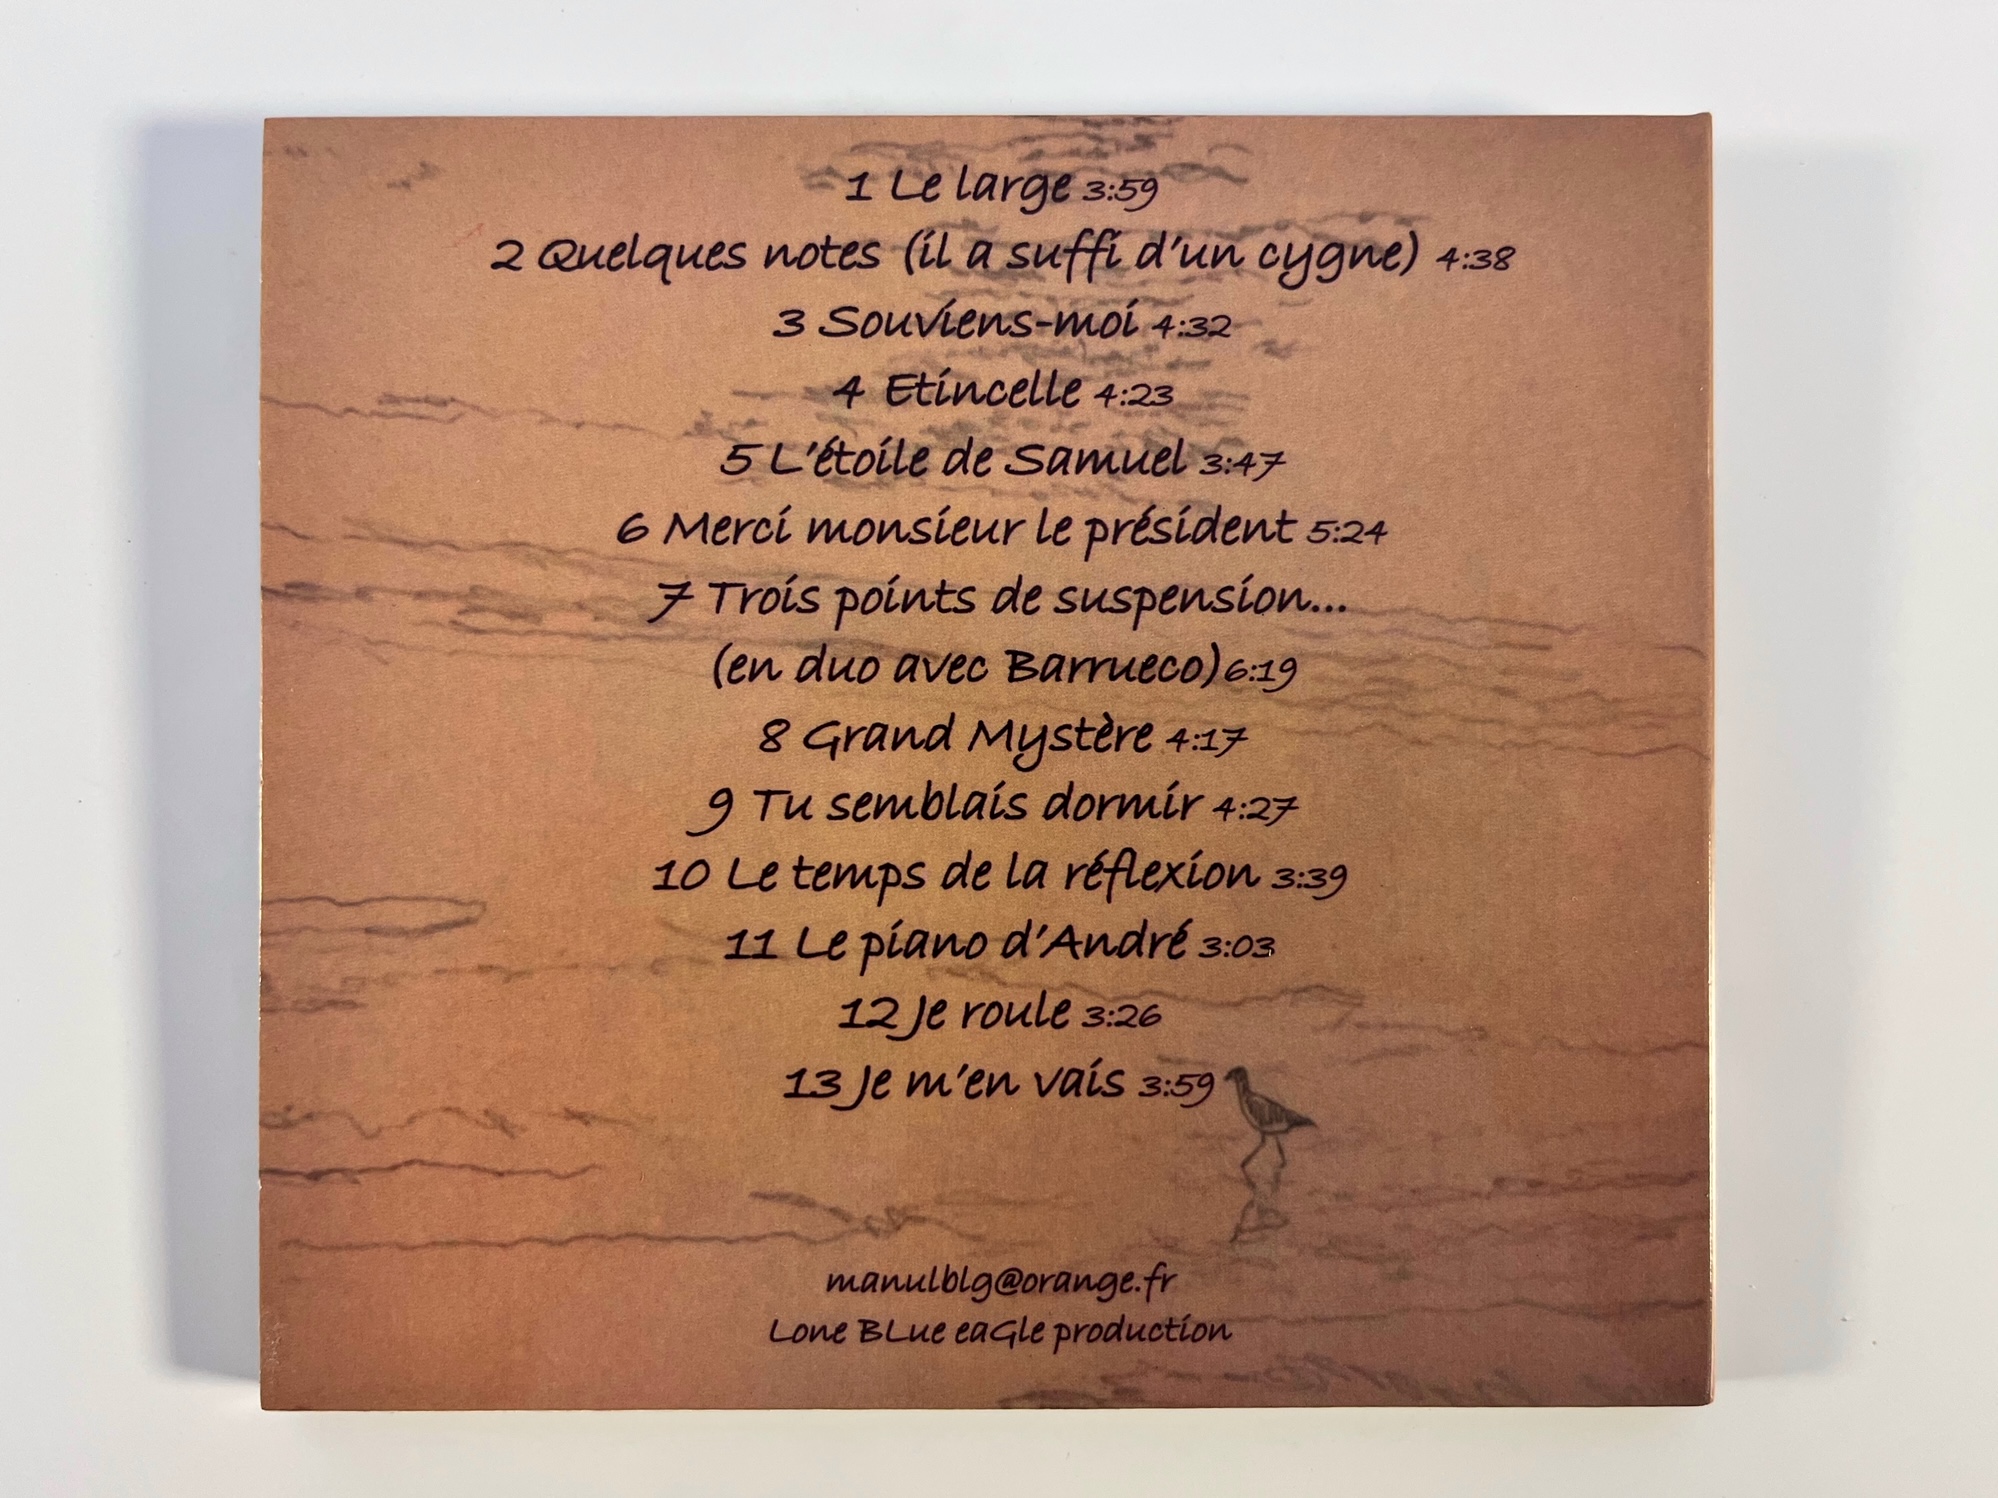 1 Le large 3:59
2 Quelques notes (il a suffi d'un cygne) 4:38
3 Souviens-moi 4:32
4 Etincelle 4:23
5 L'étoile de Samuel 3:47
6 Merci monsieur le président 5:24
7 Trois points de suspension...
(en duo avec Barrueco) 6:19
8 Grand Mystère 4:17
9 Tu semblais dormir 4:27
10 Le temps de la réflexion 3:39
11 Le piano d'André 3:03
12 Je roule 3:26
13 Je m'en vais 3:59
manulblg@orange.fr
Lone BLue eaGle production